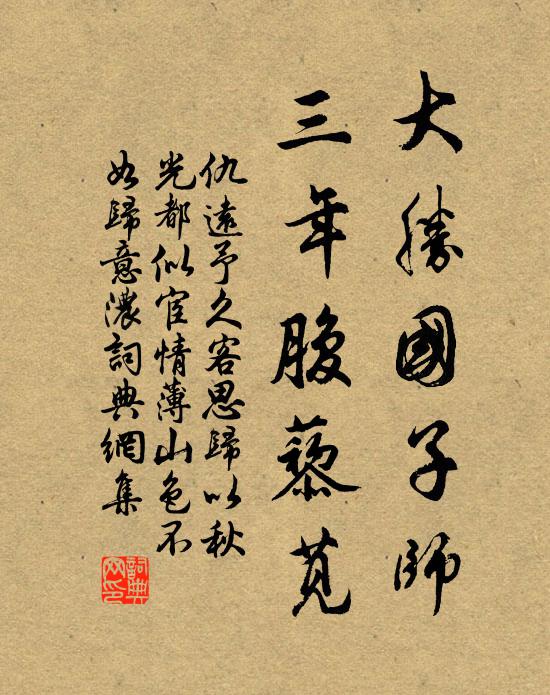 大勝國子師
三年腹藜莧
仇遠予久客思歸以秋
光都似宦情薄山色不
如歸意濃詞典網集
詞典
網印